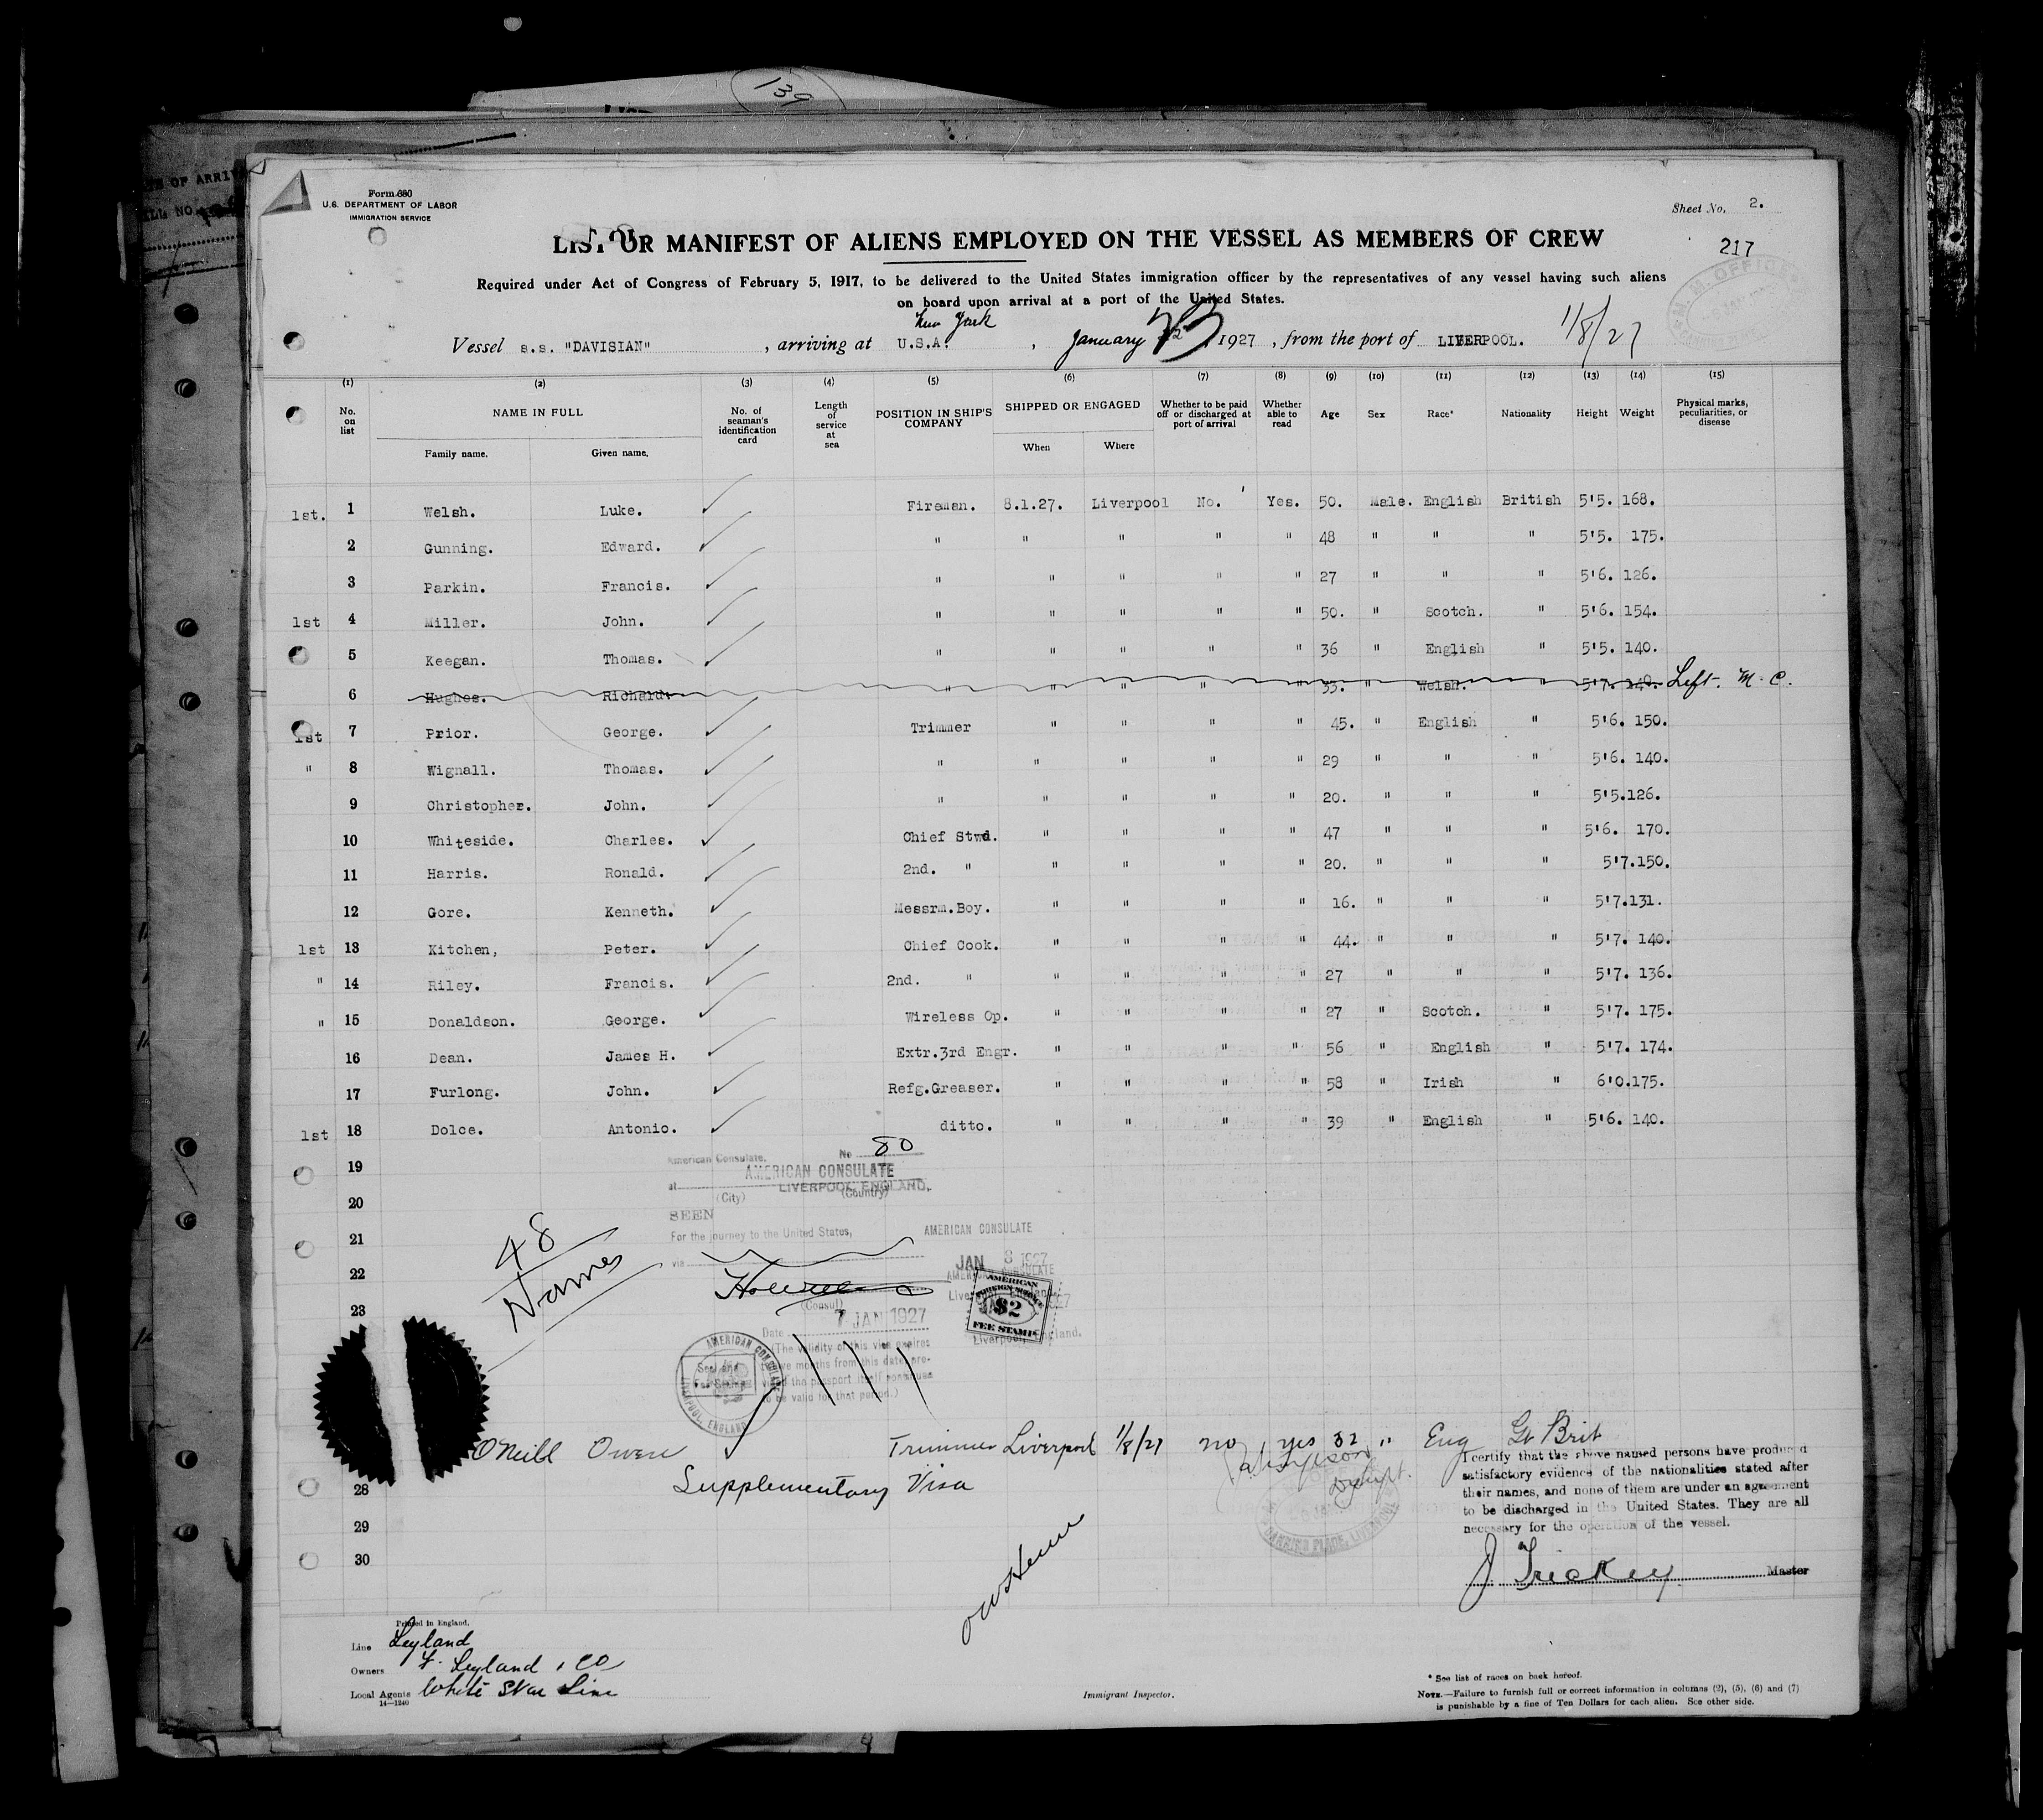 139
Form 680
U.S. DEPARTMENT OF LABOR
IMMIGRATION SERVICE
Sheet No. 2.
LIST OR MANIFEST OF ALIENS EMPLOYED ON THE VESSEL AS MEMBERS OF CREW
217
Required under Act of Congress of February 5, 1917, to be delivered to the United States immigration officer by the representatives of any vessel having such aliens
on board upon arrival at a port of the United States.
New York
Vessel s.s. "DAVISIAN" , arriving at U.S.A. , January 1927 , from the port of LIVERPOOL. 1/8/27
(1) (2) (3) (4) (5) (6) (7) (8) (9) (10) (11) (12) (13) (14) (15)
No. on list NAME IN FULL Family name. Given name. No. of seaman's identification card Length of service at sea POSITION IN SHIP'S COMPANY SHIPPED OR ENGAGED When Where Whether to be paid off or discharged at port of arrival Whether able to read Age Sex Race* Nationality Height Weight Physical marks, peculiarities, or disease
1st. 1 Welsh. Luke. Fireman. 8.1.27. Liverpool No. Yes. 50. Male. English British 5'5. 168.
2 Gunning. Edward. " " " " " 48 " " " 5'5. 175.
3 Parkin. Francis. " " " " " 27 " " " 5'6. 126.
1st 4 Miller. John. " " " " " 50. " Scotch. " 5'6. 154.
5 Keegan. Thomas. " " " " " 36 " English " 5'5. 140.
6 Hughes. Richard. " " " " " 35. " Welsh. " 5'7. 140. Left. M.C.
1st 7 Prior. George. Trimmer " " " " 45. " English " 5'6. 150.
" 8 Wignall. Thomas. " " " " " 29 " " " 5'6. 140.
9 Christopher. John. " " " " " 20. " " " 5'5.126.
10 Whiteside. Charles. Chief Stwd. " " " " 47 " " " 5'6. 170.
11 Harris. Ronald. 2nd. " " " " " 20. " " " 5'7.150.
12 Gore. Kenneth. Messrm.Boy. " " " " 16. " " " 5'7.131.
1st 13 Kitchen, Peter. Chief Cook. " " " " 44. " " " 5'7. 140.
" 14 Riley. Francis. 2nd. " " " " " 27 " " " 5'7. 136.
" 15 Donaldson. George. Wireless Op. " " " " 27 " Scotch. " 5'7. 175.
16 Dean. James H. Extr.3rd Engr. " " " " 56 " English " 5'7. 174.
17 Furlong. John. Refg.Greaser. " " " " 58 " Irish " 6'0.175.
1st 18 Dolce. Antonio. ditto. " " " " 39 " English " 5'6. 140.
American Consulate, No 80
19
AMERICAN CONSULATE
at LIVERPOOL, ENGLAND.
(City) (Country)
20
SEEN
21
For the journey to the United States,
AMERICAN CONSULATE
via
JAN 8 1927
48 Names
22
23
(Consul)
Date 7 JAN 1927
AMERICAN
$2
FEE STAMP
Liverpool, England.
(The validity of this visa expires
twelve months from this date, pro-
vided the passport itself continues
to be valid for that period.)
AMERICAN CONSULATE LIVERPOOL, ENGLAND
O'Neill Owen Trimmer Liverpool 1/8/27 no yes 32 " Eng Gt Brit
Supplementary Visa
28
29
30
I certify that the above named persons have produced
satisfactory evidence of the nationalities stated after
their names, and none of them are under an agreement
to be discharged in the United States. They are all
necessary for the operation of the vessel.
J Trickey Master
Printed in England.
Line Leyland
Owners F. Leyland & Co
Local Agents White Star Line
14—1240
Immigrant Inspector.
* See list of races on back hereof.
NOTE.—Failure to furnish full or correct information in columns (2), (5), (6) and (7)
is punishable by a fine of Ten Dollars for each alien. See other side.